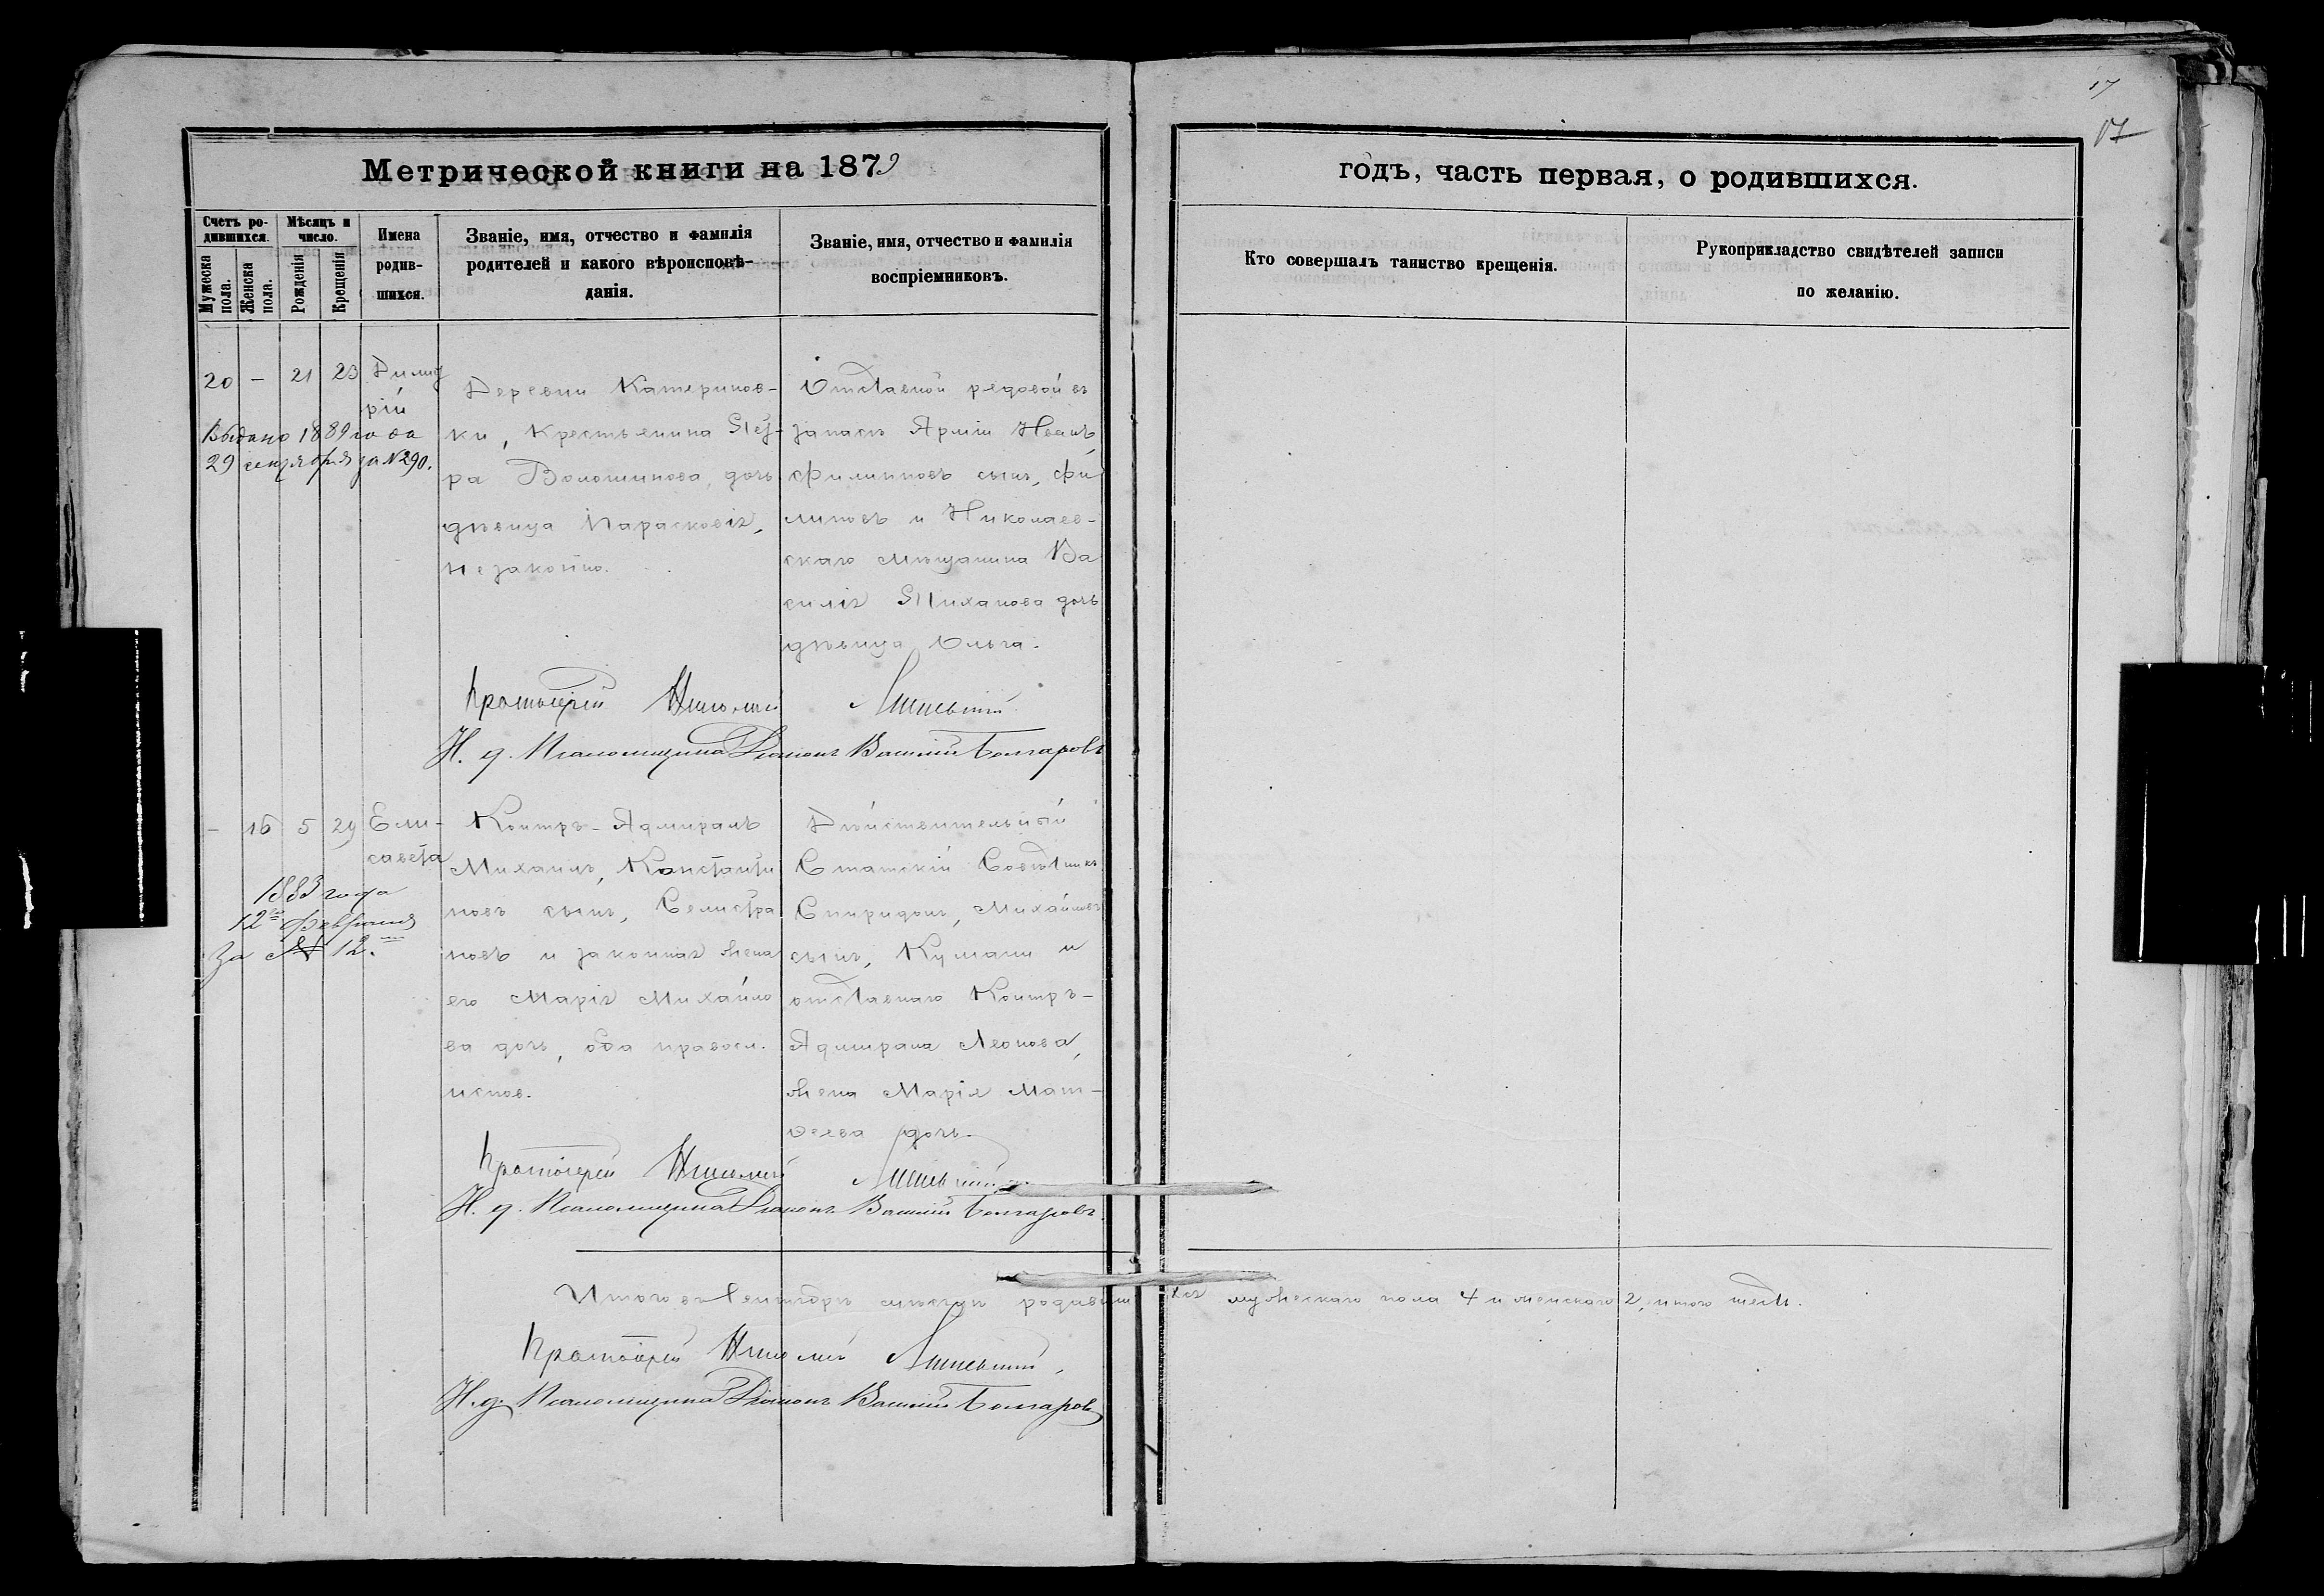 17
17
Метрической книги на 1879
годъ, часть первая, о родившихся.
Счетъ ро-
дившихся.
Мужеска
пола.
Женска
пола.
Мѣсяцъ и
число.
Рожденія
Крещенія
Имена
родив-
шихся.
Званіе, имя, отчество и фамилія
родителей и какого вѣроисповѣ-
данія.
Званіе, имя, отчество и фамилія
воспріемниковъ.
Кто совершалъ таинство крещенія.
Рукоприкладство свидѣтелей записи
по желанію.
20 — 21 23 Димит
рій
Выдано 1889 года
29 сентября за № 290.
Деревни Катеринов-
ки, Крестьянина Пет-
ра Волошинова, дочь
дѣвица Парасковія,
незаконно.
Отставной рядовой въ
запасъ Арміи Иванъ
Филипповъ сынъ, Фи
липовъ и Николаев-
скаго мѣщанина Ва
силія Тиханова дочь
дѣвица Ольга.
Протоіерей Николай
И. д. Псаломщика Діаконъ Василій Болгаровъ
— 16 5 29 Ели-
савета
1883 года
12го Февраля
За № 12.
Контръ-Адмиралъ
Михаилъ, Константи
новъ сынъ, Селистра
новъ и законная жена
его Марія Михайло
ва дочь, оба правосл.
испов.
Дѣйствительный
Статскій Совѣтникъ
Спиридонъ, Михайловъ
сынъ, Кумани и
отставнаго Контръ-
Адмирала Леонова,
жена Марія Мат-
ѳеева дочь.
Протоіерей Николай
И. д. Псаломщика Діаконъ Василій Болгаровъ.
Итого въ Сентябрѣ мѣсяцѣ родившихся мужескаго пола 4 и женскаго 2, итого шесть.
Протоіерей Николай
И. д. Псаломщика Діаконъ Василій Болгаровъ